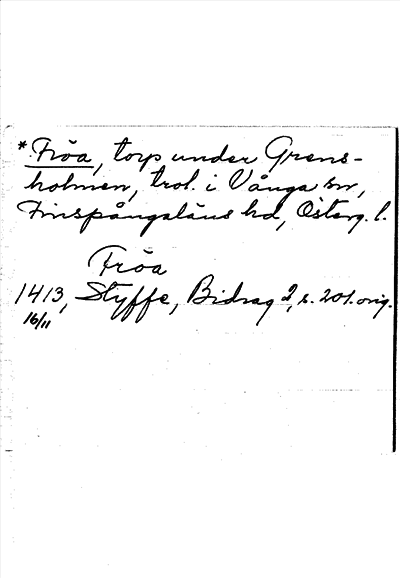 * Fröa, torp under Grens-
holmen, trol. i Vånga sn,
Finspångaläns hd, Österg. l.
Fröa
1413, Styffe, Bidrag 2, s. 201. orig.
16/11